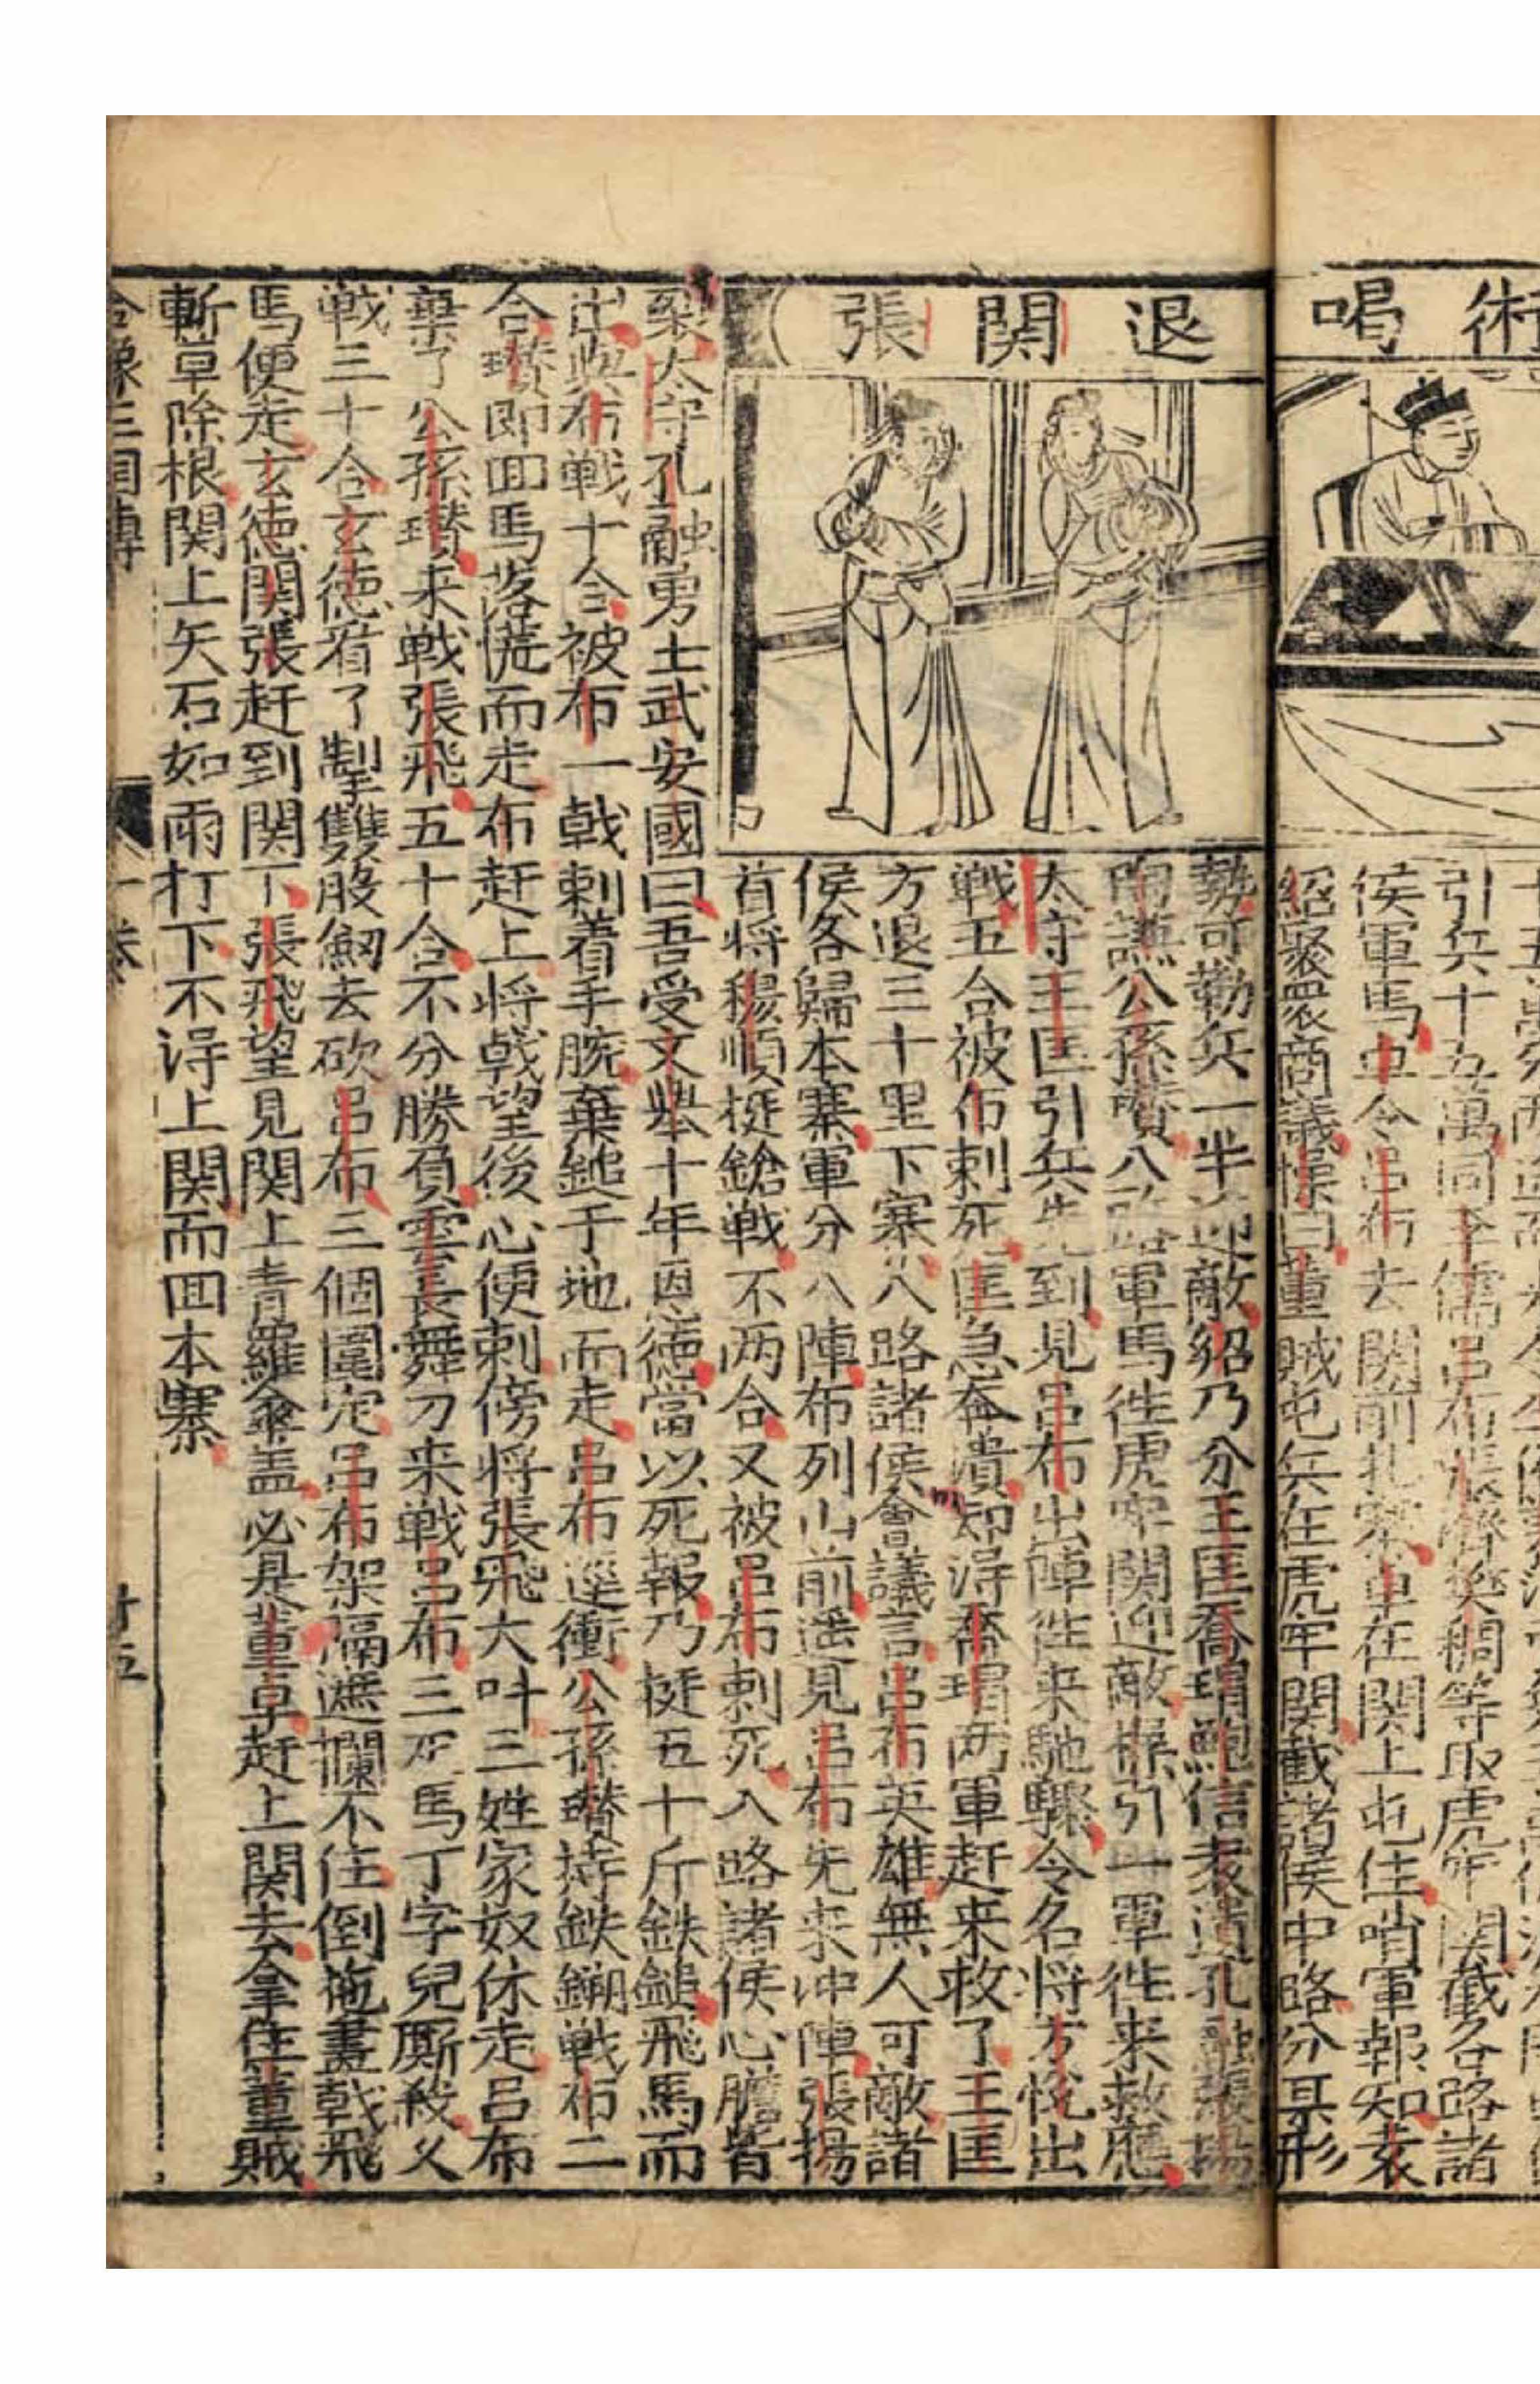 術喝
退関張
引兵十五萬同李儒呂布張濟樊稠等取虎牢関截各路諸
侯軍馬卓令呂布去関前扎寨卓在関上屯住哨軍報知袁
紹聚衆商議操曰董賊屯兵在虎牢関截諸侯中路分某形
勢可勒兵一半迎敵紹乃分王匡喬瑁鮑信袁遺孔融張揚
陶謙公孫瓚八路軍馬徃虎牢関迎敵操引一軍徃来救應
太守王匡引兵先到見呂布出陣徃来馳驟令名将方悅出
戦五合被布刺死匡急奔潰却淂喬瑁両軍赶来救了王匡
方退三十里下寨八路諸侯會議言呂布英雄無人可敵諸
侯各歸本寨軍分八陣布列山前遥見呂布先来冲陣張揚
首将穆順挺鎗戦不两合又被呂布刺死八路諸侯心膽皆
裂太守孔融勇士武安國曰吾受文舉十年恩德當以死報乃挺五十斤鉄鎚飛馬而
出與布戦十合被布一戟刺着手腕棄鎚于地而走呂布逕衝公孫瓚持鉄鎙戦布二
合瓚即囬馬落慌而走布赶上将戟望後心便刺傍将張飛大叶三姓家奴休走呂布
棄了公孫瓚来戦張飛五十合不分勝負雲長舞刀来戦呂布三疋馬丁字兒厮殺乂
戦三十合玄德看了掣雙股劔去砍呂布三個圍定呂布架隔遮攔不住倒拖畫戟飛
馬便走玄德関張赶到関下張飛望見関上青羅傘盖必是董卓赶上関去拿住董賊
斬草除根関上矢石如雨打下不淂上関而囬本寨
合像三国傳
一卷
廿五